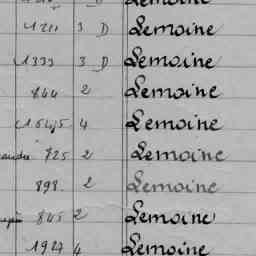 Lemoine
3 D Lemoine
1333 3 D Lemoine
844 2 Lemoine
4 Lemoine
825 2 Lemoine
898 2 Lemoine
845 2 Lemoine
1927 4 Lemoine